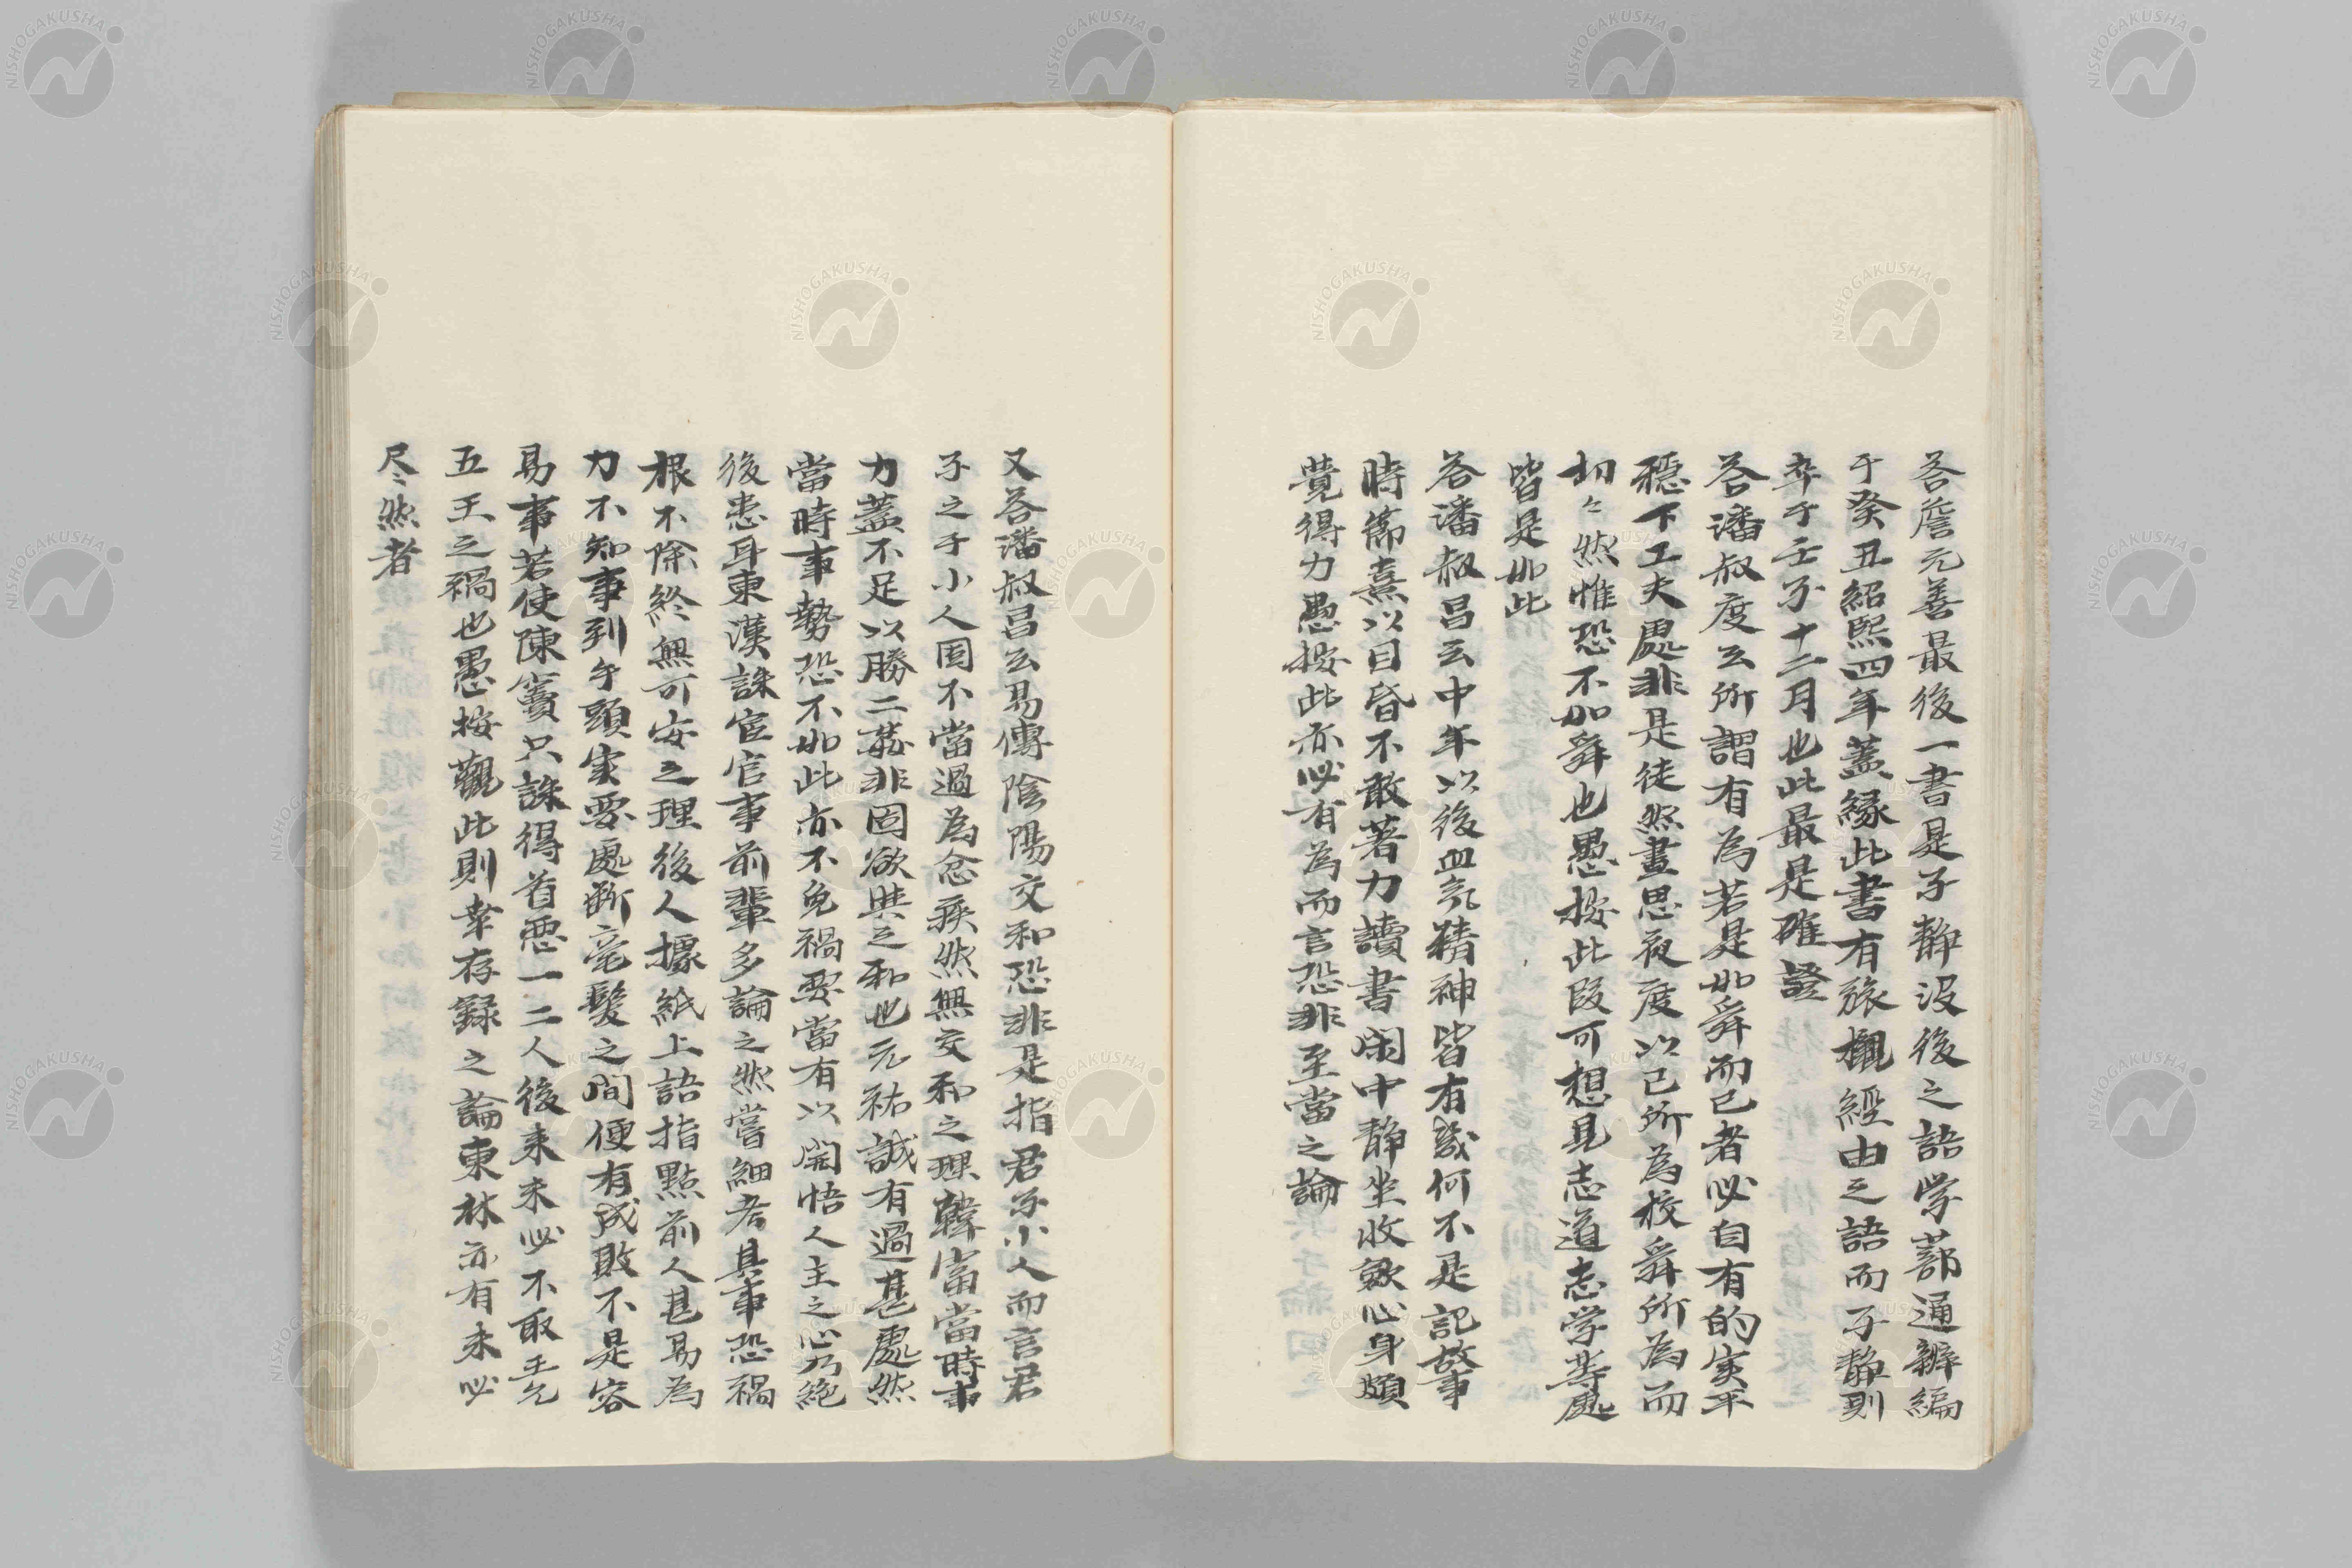 答詹元善最後一書是子静没後之語学蔀通辨編
于癸丑紹熙四年蓋縁此書有旅櫬經由之語而子静則
卒于壬子十二月也此最是確證
答潘叔度云所謂有為若是如舜而已者必自有的実平
穏下工夫處非是徒然晝思夜度以己所為校舜所為而
切々然惟恐不如舜也愚按此段可想見志道志学等處
皆是如此
答潘叔昌云中年以後血気精神皆有幾何不是記故事
時節熹以目昏不敢著力讀書閑中静坐收歛心身頗
覺得力愚按此亦必有為而言恐非至當之論
又答潘叔昌云易傳陰陽交和恐非是指君子小人而言君
子之于小人固不當過為忿疾然無交和之理韓富當時事
力蓋不足以勝二蔡非固欲與之和也元祐誠有過甚處然
當時事勢恐不如此亦不免禍要當有以開悟人主之心乃絶
後患耳東漢誅宦官事前輩多論之然嘗細考其事恐禍
根不除終無可安之理後人據紙上語指點前人甚易為
力不知事到手頭実要處断毫髮之間便有成敗不是容
易事若使陳竇只誅得首惡一二人後来未必不取王允
五王之禍也愚按觀此則幸存録之論東林亦有未必
尽然者